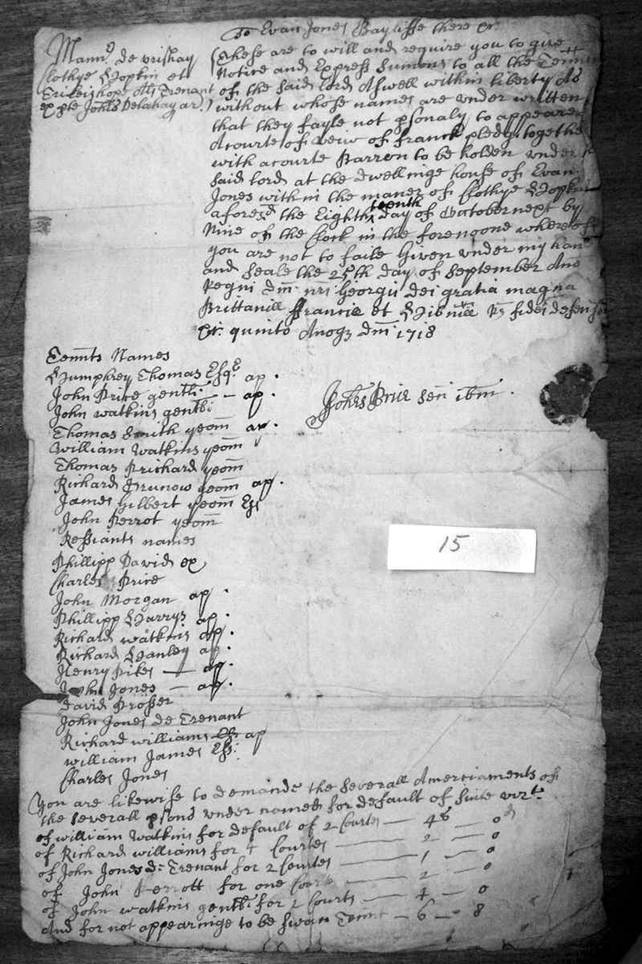 To Evan Jones Bayliffe there &c
Mann.o de vrishay
clothye Hoptin et
Eribishop als Trenant
ex pte Johis Delahay ar.
These are to will and require you to give
Notice and Express Sumons to all the Tennts
of the said Lord Aswell within liberty As
without whose names are vnder written
that they fayle not psonaly to appeare
Acourte of veiw of franck pledge togethe
with acourte Barron to be holden vnder
said lord at the dwellinge house of Evan
Jones within the maner of Clothye Hopkin
aforesd the Eighth teenth day of October next by
Nine of the Clock in the forenoone whereof
you are not to faile Given vnder my han
and Seale the 25th day of September Ano
Regni Dm nri Georgii dei gratia magna
Brittanill Francie et Hibnill Rs fidei defens
&c. quinto Anoqs Dm 1718
Tennts Names
Humphrey Thomas Esqr ap.
John Price gentli — ap.
John watkins gentli — ap.
Thomas Smith yeom ap.
William Watkins yeom
Thomas Prichard yeom
Richard Prunow yeom ap.
James Gilbert yeom Ess
John Perrot yeom
Johes Price Sen ibm.
Ressiants names
Phillipp David ex
Charles Price
John Morgan ap.
Phillipp Harrys ap.
Richard watkins ap.
Richard Hanley ap.
Henry Pikes — ap.
John Jones — ap.
David Prosser
John Jones de Trenant
Richard williams Ess ap
william James Ess:
Charles Jones
15
You are likewise to demande the Severall Amerciaments of
the severall psons vnder named for default of suite vizt.
of william Watkins for default of 2 Courtes — 4s — 0d
of Richard williams for Courtes — 2 — 0
of John Jones de Trenant for 2 Courtes — 1 — 0
of John Perrott for one Court — 2 — 0
of John watkins gentli for 2 Courts — 4 — 0
And for not appearinge to be Swan Tennt — 6 — 8